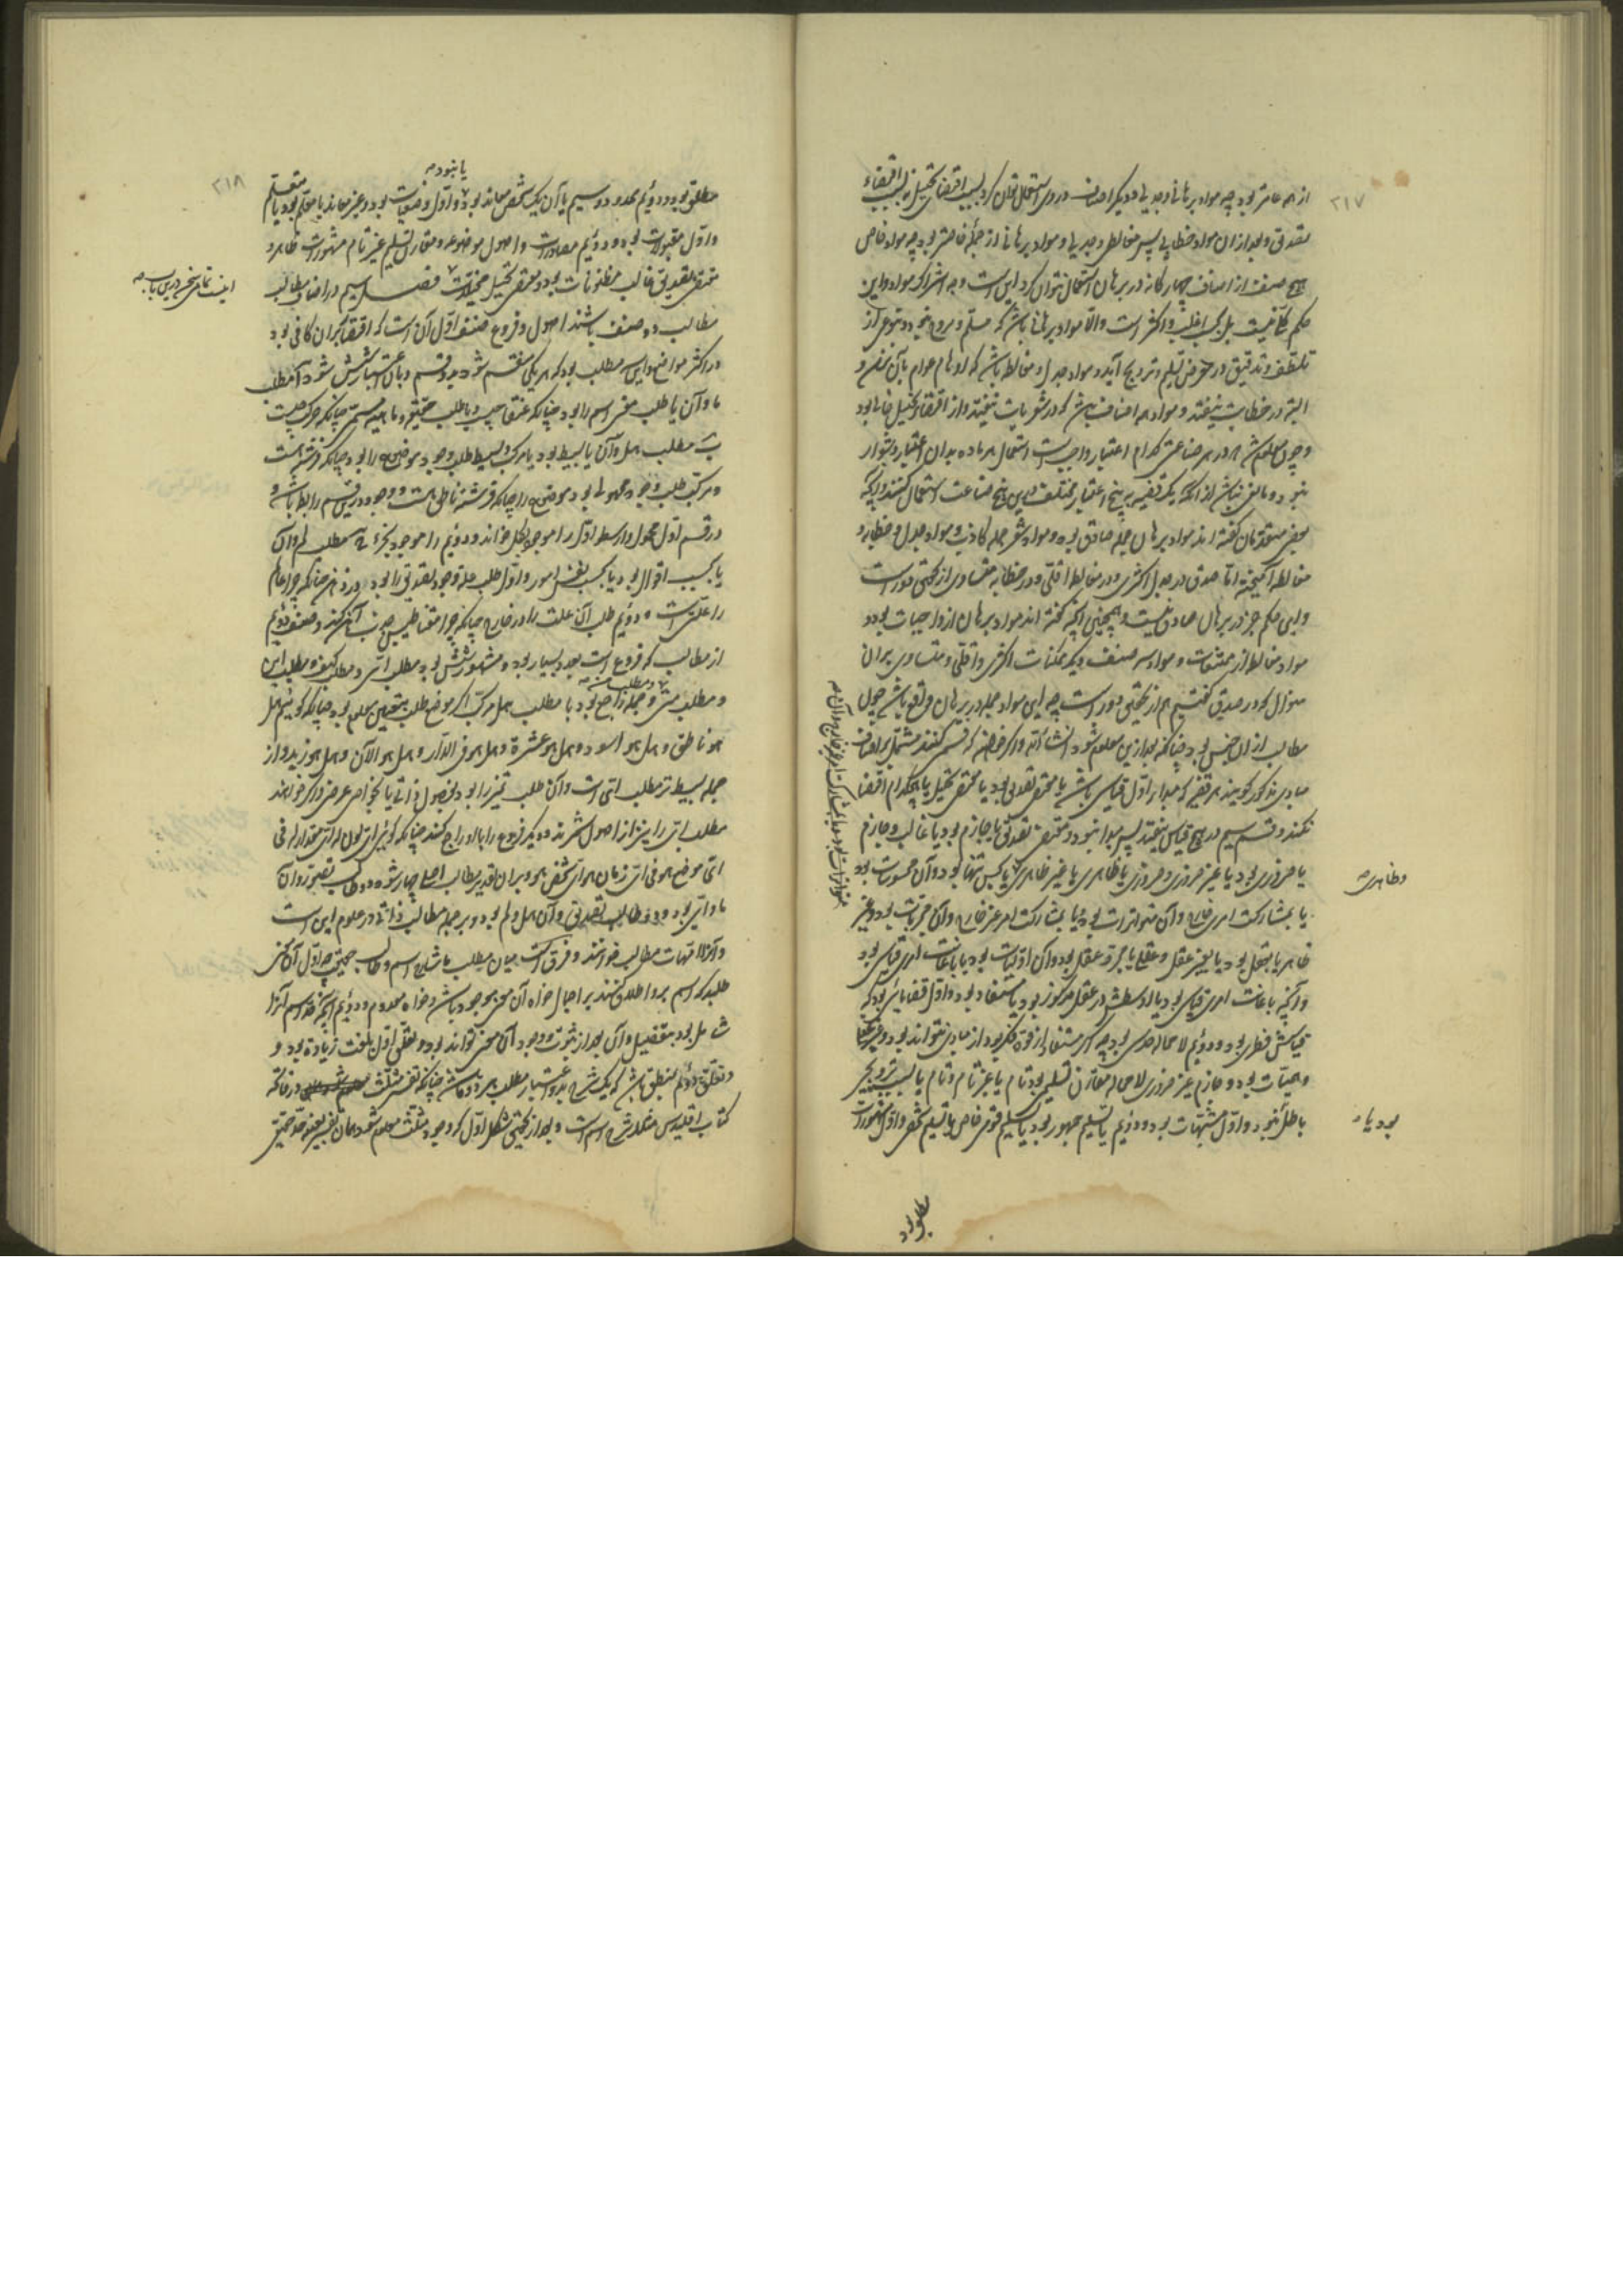 ۲۱۷
از همه عامتر بود چه مواد برهانی و جدلی و دیگر اصناف در وی استعمال توان کرد بسبب اقتضای تخییل نه بسبب اقتضاء
تصدیق و بعد از آن مواد خطابی پس مغالطی و جدلی و مواد برهانی از جمله خاصتر بود چه مواد خاص
هیچ صنف از اصناف چهارگانه در برهان استعمال نتوان کرد این است وجه اشتراک مواد و این
حکم کلی نیست بل بحسب اغلب و اکثر است والا مواد برهانی باشد که مسلم و مروج نبود و بنوعی از
تلطف و تدقیق در معرض تسلیم و ترویج آید و مواد جدل و مغالطه باشد که اوهام عوام بآن نرسد و
البته در خطابت نیفتد و مواد همه اصناف باشد که در شعریات نیفتد و از اقتضاء تخییل خالی بود
و چون معلوم شد که در هر صناعتی کدام اعتبار واجب است استعمال هر ماده بدان اعتبار دشوار
نبود و مانعی نباشد از آنکه یک قضیه به پنج اعتبار مختلف درین پنج صناعت استعمال کنند و آنکه
بعضی متقدمان گفته اند مواد برهان جمله صادق بود و مواد شعر جمله کاذب و مواد جدل و خطابه و
مغالطه آمیخته اما صدق در جدل اکثری و در مغالطه اقلی و در خطابه متساوی از تحقیق دور است
و این حکم جز در برهان صادق نیست و همچنین آنچه گفته اند مواد برهان از واجبات بود و
مواد مغالطه از ممتنعات و مواد سه صنف دیگر ممکنات اکثری و اقلی و متساوی بر آن
منوال که در صدق گفتیم هم از تحقیق دور است چه این مواد جمله در برهان واقع باشد چون
مطالب از آن جنس بود چنانکه بعد ازین معلوم شود انشاء الله و اگر خواهند که قسمتی کنند مشتمل بر اصناف
مبادی مذکور گویند هر قضیه که مبداء اول قیاسی باشد یا مقتضی تصدیقی بود یا مقتضی تخییل یا هیچکدام اقتضا
نکند و قسم سیم در هیچ قیاس نیفتد پس مبدا نبود و مقتضی تصدیق یا جازم بود یا غالب و جازم
یا ضروری بود یا غیر ضروری و ضروری یا ظاهری یا غیر ظاهری یا بحس تنها بود و آن محسوسات بود
یا بمشارکت امری خارج و آن متواترات بود و یا بمشارکت امر غیر خارج و آن مجربات بود و غیر
ظاهر یا بعقل بود یا بغیر عقل و عقلی یا بمجرد عقل بود و آن اولیات بود یا باعانت امری قیاسی بود
و آنچه باعانت امری قیاسی بود یا اوسطش در عقل مرکوز بود یا مستفاد بود و اول قضایائی بود که
قیاسش فطری بود و دوئم لا محاله حدسی بود چه اگر مستفاد از قوة فکر بود از مبادی نتواند بود و غیر عقلی
وهمیات بود و جازم غیر ضروری لا محاله مقارن تسلیمی بود تام یا غیر تام و تام یا بسبب ترویجی
باطل نبود و اول مشبهات بود و دوئم یا تسلیم جمهور بود یا تسلیم قومی خاص یا تسلیم شخصی و اول مشهورات
وظاهری صح
بود یا صح
۲۱۸
یا نبود صح
مطلق بود و دوئم محدود و سیم یا آن یک شخص معاند بود و اول وضعیات بود و غیر معاند یا معلم بود یا متعلم
و اول مقبولات بود و دوئم مصادرات و اصول موضوعه و مقارن تسلیم غیر تام مشهورات ظاهر و
مقتضی تصدیق غالب مظنونات بود و مقتضی تخییل مخیلات فصل سیم در اصناف مطالب
مطالب دو صنف باشند اصول و فروع صنف اول آن است که اقتصار بر آن کافی بود
در اکثر مواضع و این سه مطلب بود که هر یکی منقسم شود بدو قسم و باین اعتبار شش شود آ مطلب
ما و آن یا طلب معنی اسم را بود چنانکه عنقا چیست و یا طلب حقیقه و ماهیه مسمی چنانکه حرکت چیست
ب مطلب هل و آن یا بسیط بود یا مرکب و بسیط طلب وجود موضوع را بود چنانکه فرشته هست
و مرکب طلب وجود محمولی بود موضوع را چنانکه فرشته ناطق هست و وجود درین قسم رابط باشد و
در قسم اول محمول و ارسطو اول را موجود بکل خوانده و دوئم را موجود بجزء ج مطلب لم و آن
یا بحسب اقوال بود یا بحسب نفس امور و اول طلب علة وجود تصدیق را بود در ذهن چنانکه چرا عالم
را علتی است و دوئم طلب آن علت را در خارج چنانکه چرا مغناطیس جذب آهن کند و صنف دوئم
از مطالب که فروع است بعدد بسیار بود و مشهورش شش بود مطلب ای و مطلب کیف و مطلب این
و مطلب متی و جمله راجع بود با مطلب هل مرکب اگر موضع طلب بتعیین معلوم بود چنانکه گوئیم هل
هو ناطق و هل هو اسود و هل هو عشرة و هل هو فی الدار و هل هو الآن و هل هو زید و از
جمله بسیط تر مطلب ای است و آن طلب تمیز را بود بفصول ذاتی یا بخواص عرضی و اگر خواهند
مطلب ای را نیز از اصول شمرند و دیگر فروع را با او راجع کنند چنانکه گوئی ای لون له ای مقدار له فی
ای موضع هو فی ای زمان هو ای شخص هو و بر آن تقدیر مطالب اصلی چهار شود دو طالب تصور و آن
ما و ای بود و دو طالب تصدیق و آن هل و لم بود و بر جمله مطالب ذاتی در علوم این است
و آنرا امهات مطالب خوانند و فرق است میان مطلب ما شارح اسم و طالب حقیقت چه اول آن معنی
طلبد که اسم برو اطلاق کنند بر اجمال خواه آن معنی موجود باش و خواه معدوم و دوئم آنچه نفس اسم آنرا
شامل بود بتفصیل و آن بعد از ثبوت وجود آن معنی تواند بود و تعلق اول بلغت زیادة بود و
و تعلق دوئم بمنطق باشد که یک شرح بدو اعتبار مطلب هر دو ما باشد چنانکه تفسیر مثلث در فاتحه
کتاب اقلیدس مفید شرح اسم است و بعد از تحقیق شکل اول که وجود مثلث معلوم شود همان تفسیر بعینه حد حقیقی